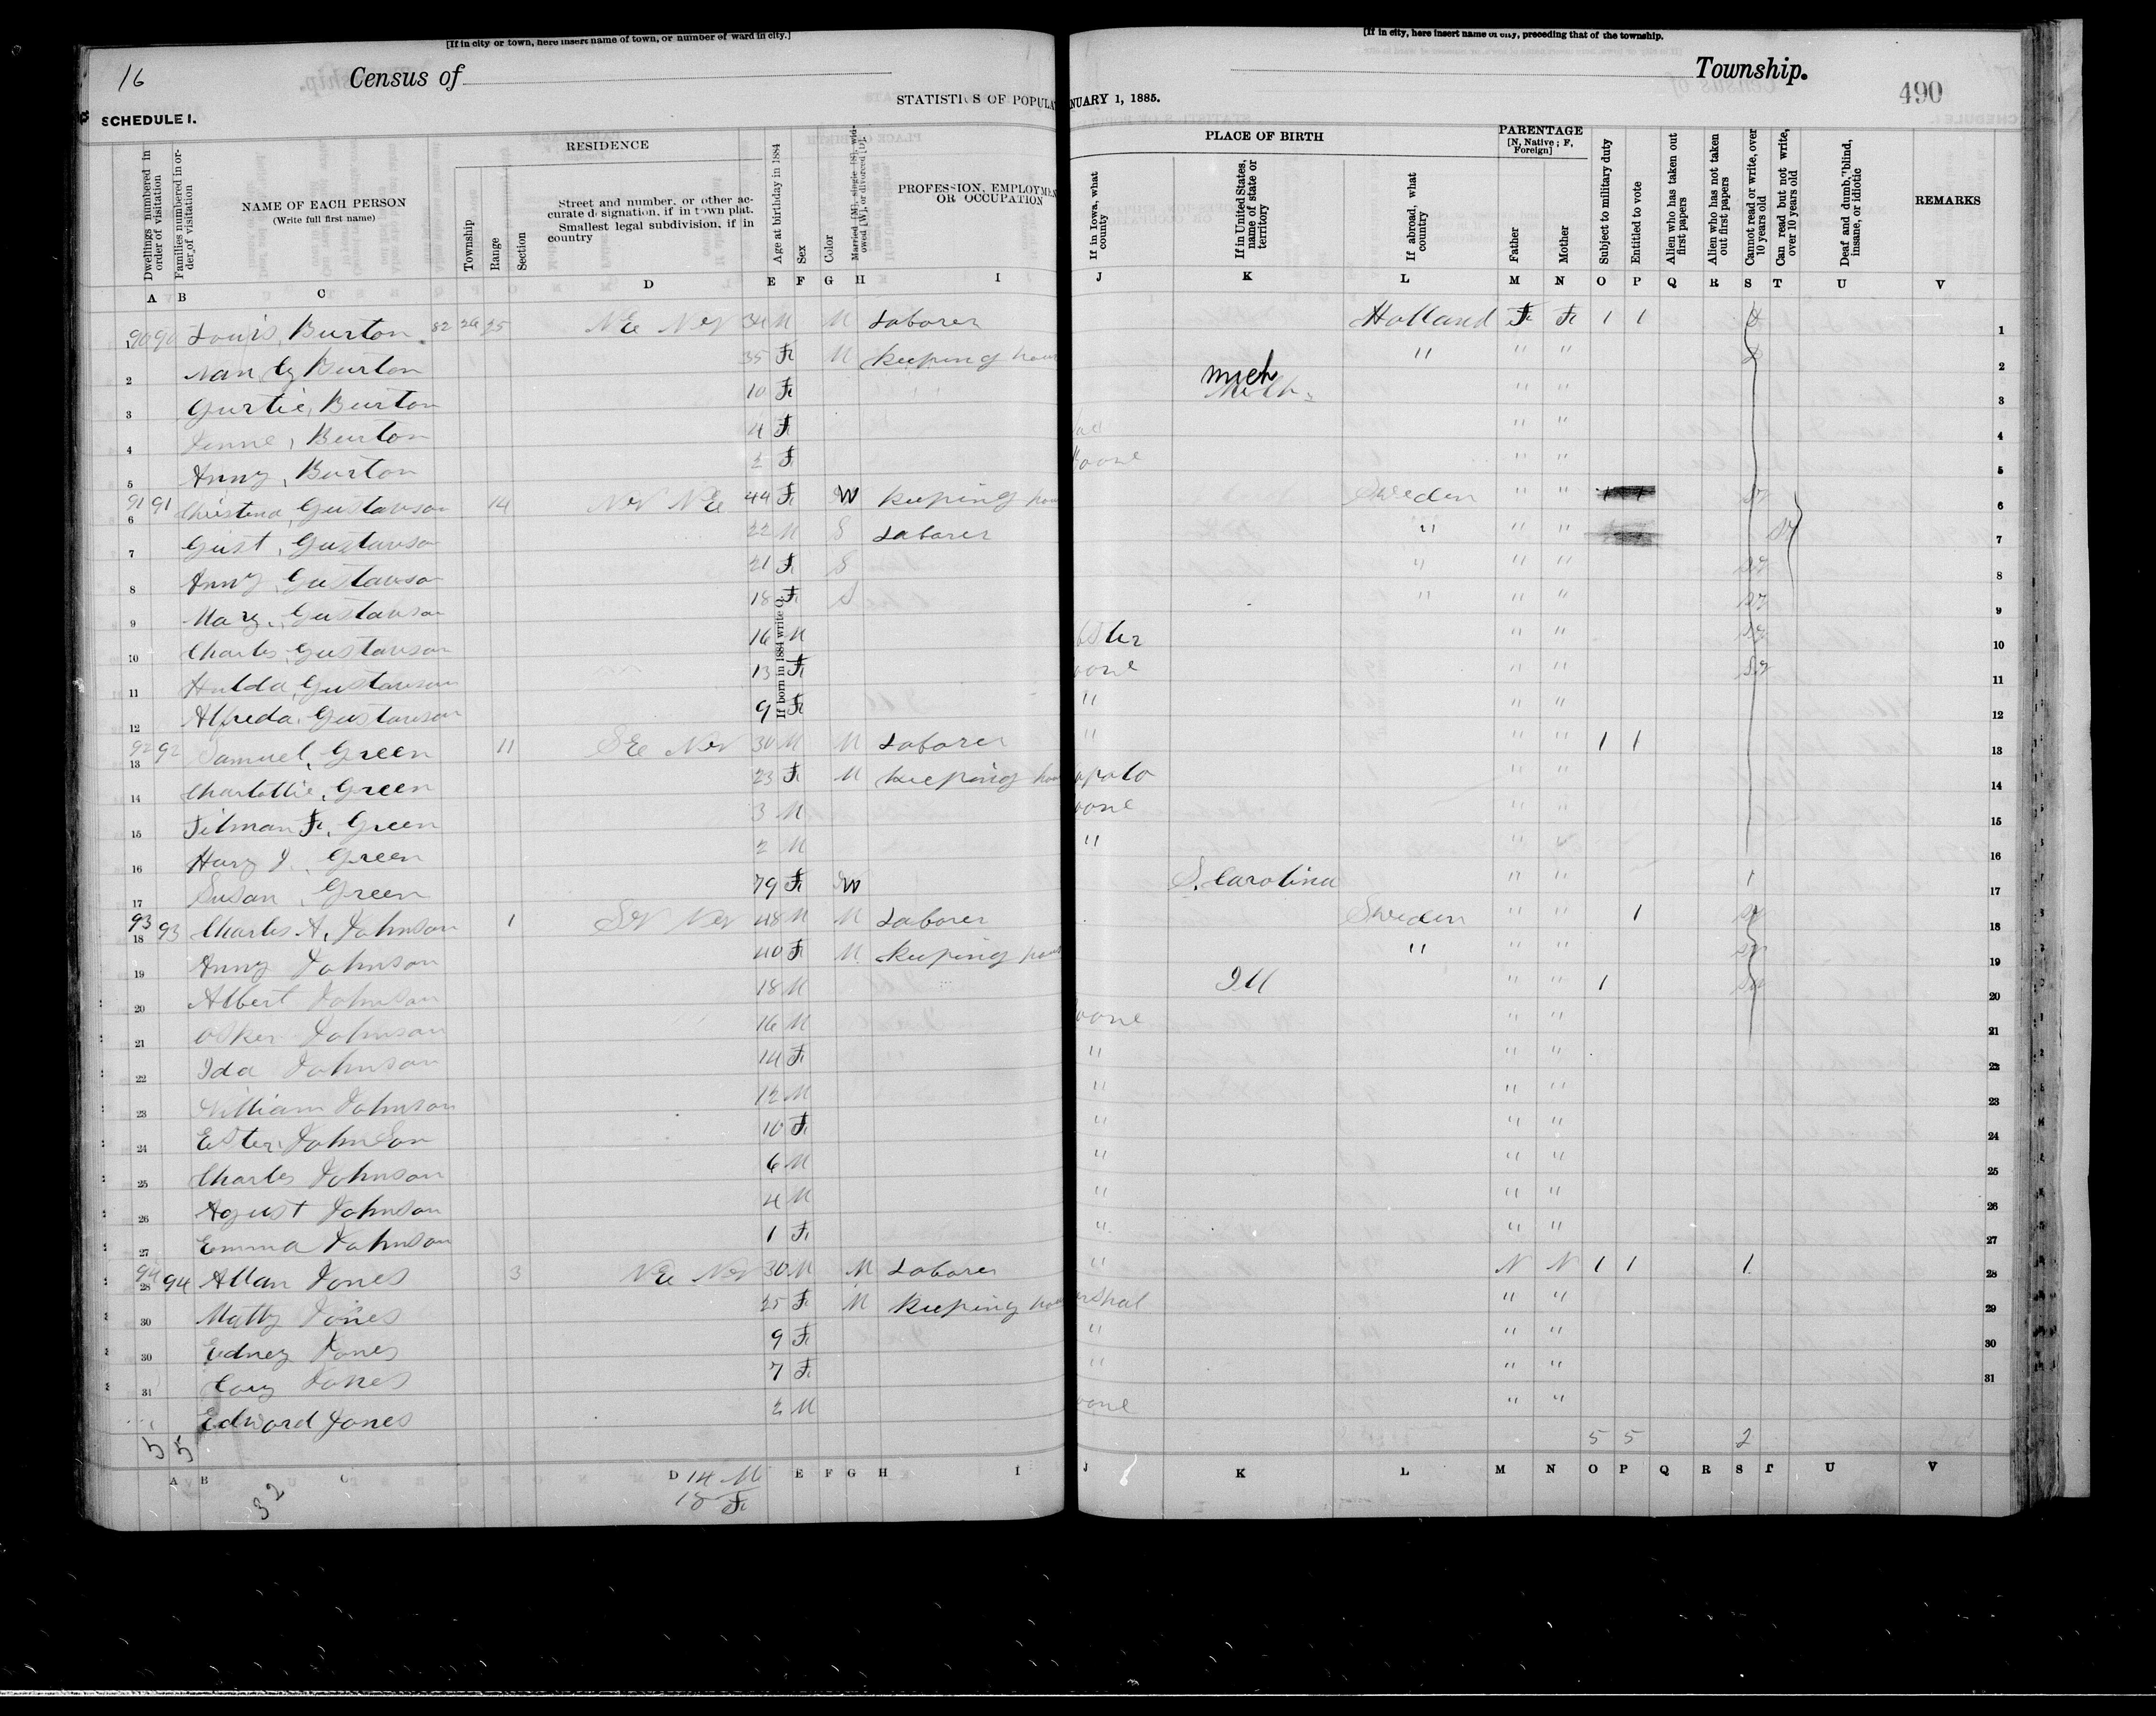 [If in city or town, here insert name of town, or number of ward in city.]
[If in city, here insert name of city, preceding that of the township.
16 Census of Township.
STATISTICS OF POPULA NUARY 1, 1885. 490
SCHEDULE I.
Dwellings numbered in order of visitation
Families numbered in order of visitation
NAME OF EACH PERSON
(Write full first name)
RESIDENCE
Township
Range
Section
Street and number, or other accurate designation, if in town plat. Smallest legal subdivision, if in country
Age at birthday in 1884
If born in 1884 write 0.
Sex
Color
Married [M], single [S], widowed [W], or divorced [D].
PROFESSION, EMPLOYMEN OR OCCUPATION
PLACE OF BIRTH
If in Iowa, what county
If in United States, name of state or territory
If abroad, what country
PARENTAGE
[N, Native; F, Foreign]
Father
Mother
Subject to military duty
Entitled to vote
Alien who has taken out first papers
Alien who has not taken out first papers
Cannot read or write, over 10 years old
Can read but not write, over 10 years old
Deaf and dumb, blind, insane, or idiotic
REMARKS
A B C D E F G H I J K L M N O P Q R S T U V
1 90 90 Louis, Burton 82 26 25 NE NW 34 M M Laborer Holland F F 1 1 1
2 Burton 35 F M Keeping hou " " " 2
3 Gurtie, Burton 10 F Mich " " 3
4 Jenne, Burton 4 F " " 4
5 Anny, Burton 2 F oone " " 5
6 91 91 Christena, Gustavson 14 NW NE 44 F W Keeping hou Sweden " " 6
7 Gust, Gustavson 22 M S Laborer " " " 7
8 Anny, Gustavson 21 F S " " " 8
9 Mary, Gustavson 18 F S " " " 9
10 Charles, Gustavson 16 M bster " " 10
11 Hulda, Gustavson 13 F oone " " 11
12 Alfreda, Gustavson 9 F " " " 12
13 92 92 Samuel, Green 11 SE NW 30 M M Laborer " " " 1 1 13
14 Charlottie, Green 23 F M Keeping hou apalo " " 14
15 Tilman F, Green 3 M oone " " 15
16 Hary J, Green 2 M " " " 16
17 Susan, Green 79 F W S. Carolina " " 1 17
18 93 93 Charles A, Johnson 1 SW NW 48 M M Laborer Sweden " " 1 18
19 Anny Johnson 40 F M Keeping hous " " " 19
20 Albert Johnson 18 M Ill " " 1 20
21 Osker Johnson 16 M oone " " 21
22 Ida Johnson 14 F " " " 22
23 William Johnson 12 M " " " 23
24 Ester Johnson 10 F " " " 24
25 Charles Johnson 6 M " " " 25
26 Agust Johnson 4 M " " " 26
27 Emma Johnson 1 F " " " 27
28 94 94 Allan Jones 3 NE NW 30 M M Laborer " N N 1 1 1 28
30 Matty Jones 25 F M Keeping hou rshal " " 29
30 Edney Jones 9 F " " " 30
31 Jones 7 F " " " 31
Edward Jones 2 M oone " "
5 5 5 5 2
A B C D E F G H I J K L M N O P Q R S T U V
32 14 M
18 F